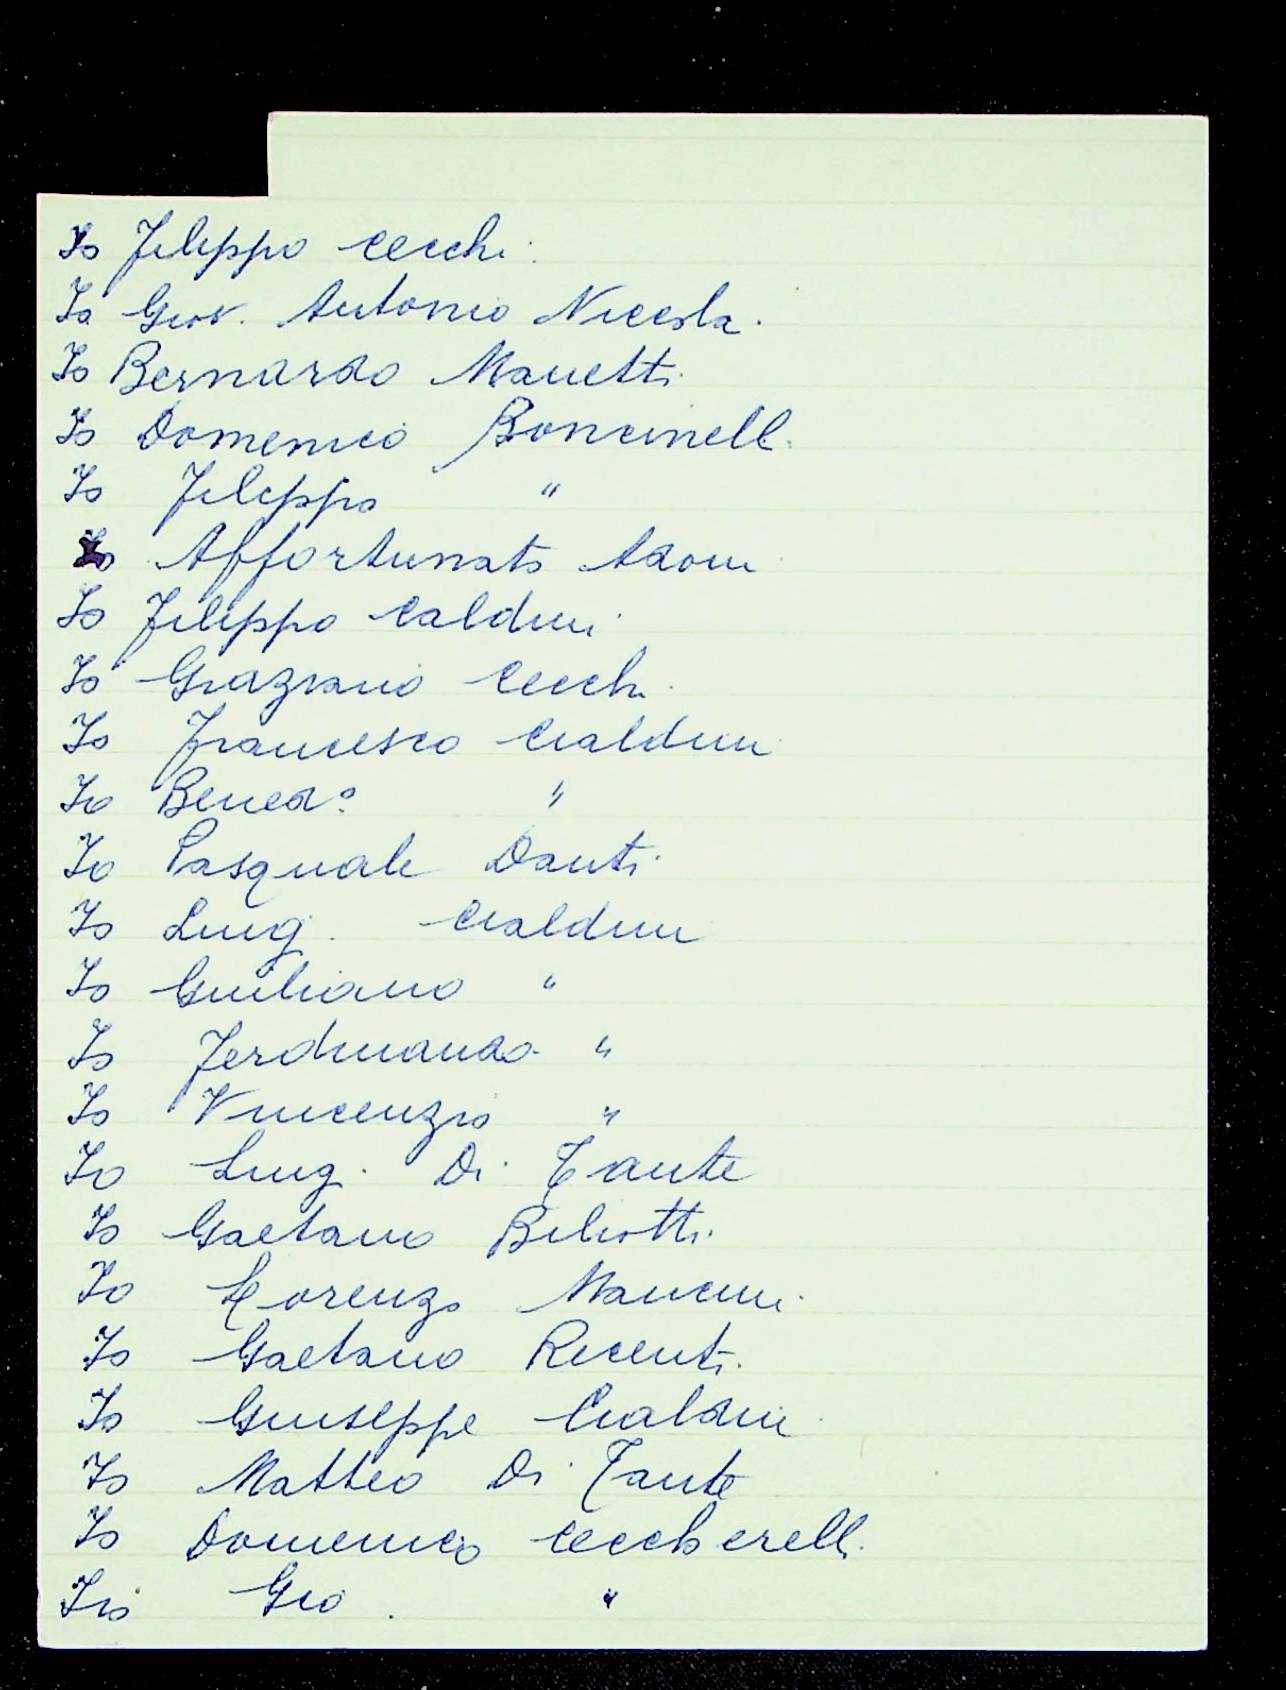 Io Filippo Cecchi.
Io Giov. Antonio Niccola.
Io Bernardo Manetti
Io Domenico Boncinelli
Io Filippo "
Io Affortunato Adoni
Io Filippo Caldini
Io Graziano Cecchi
Io Francesco Cialdini
Io Bened.º "
Io Pasquale Danti
Io Luigi Cialdini
Io Giuliano "
Io Ferdinando "
Io Vincenzio "
Io Luigi Di Tante
Io Gaetano Biliotti
Io Lorenzo Mancini
Io Gaetano Ricenti
Io Giuseppe Cialdini
Io Matteo Di Tante
Io Domenico Ceccherelli
Io Gio. "